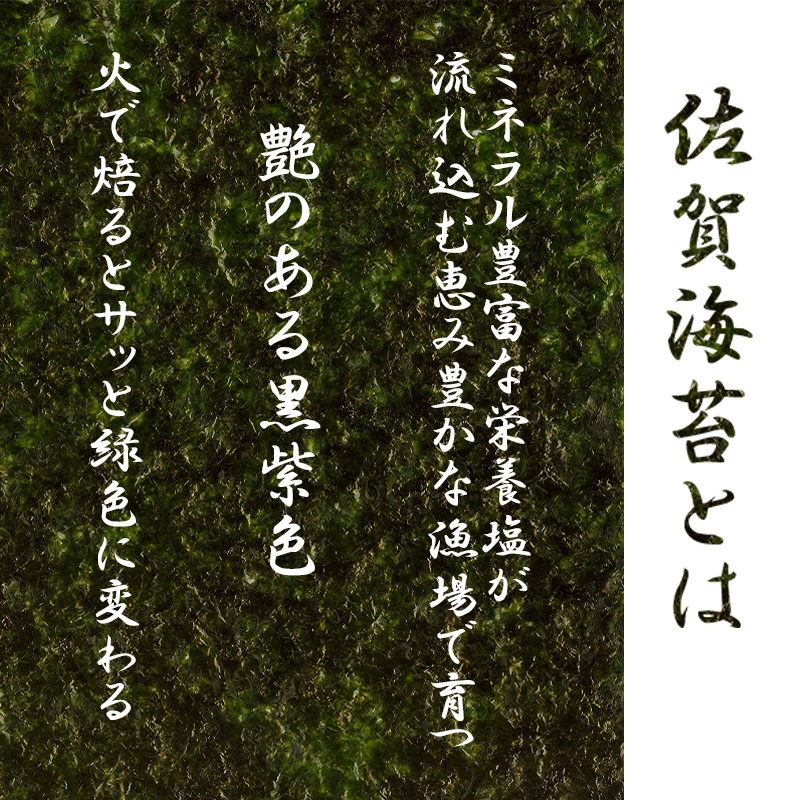 佐賀海苔とは
ミネラル豊富な栄養塩が
流れ込む恵み豊かな漁場で育つ
艶のある黒紫色
火で焙るとサッと緑色に変わる